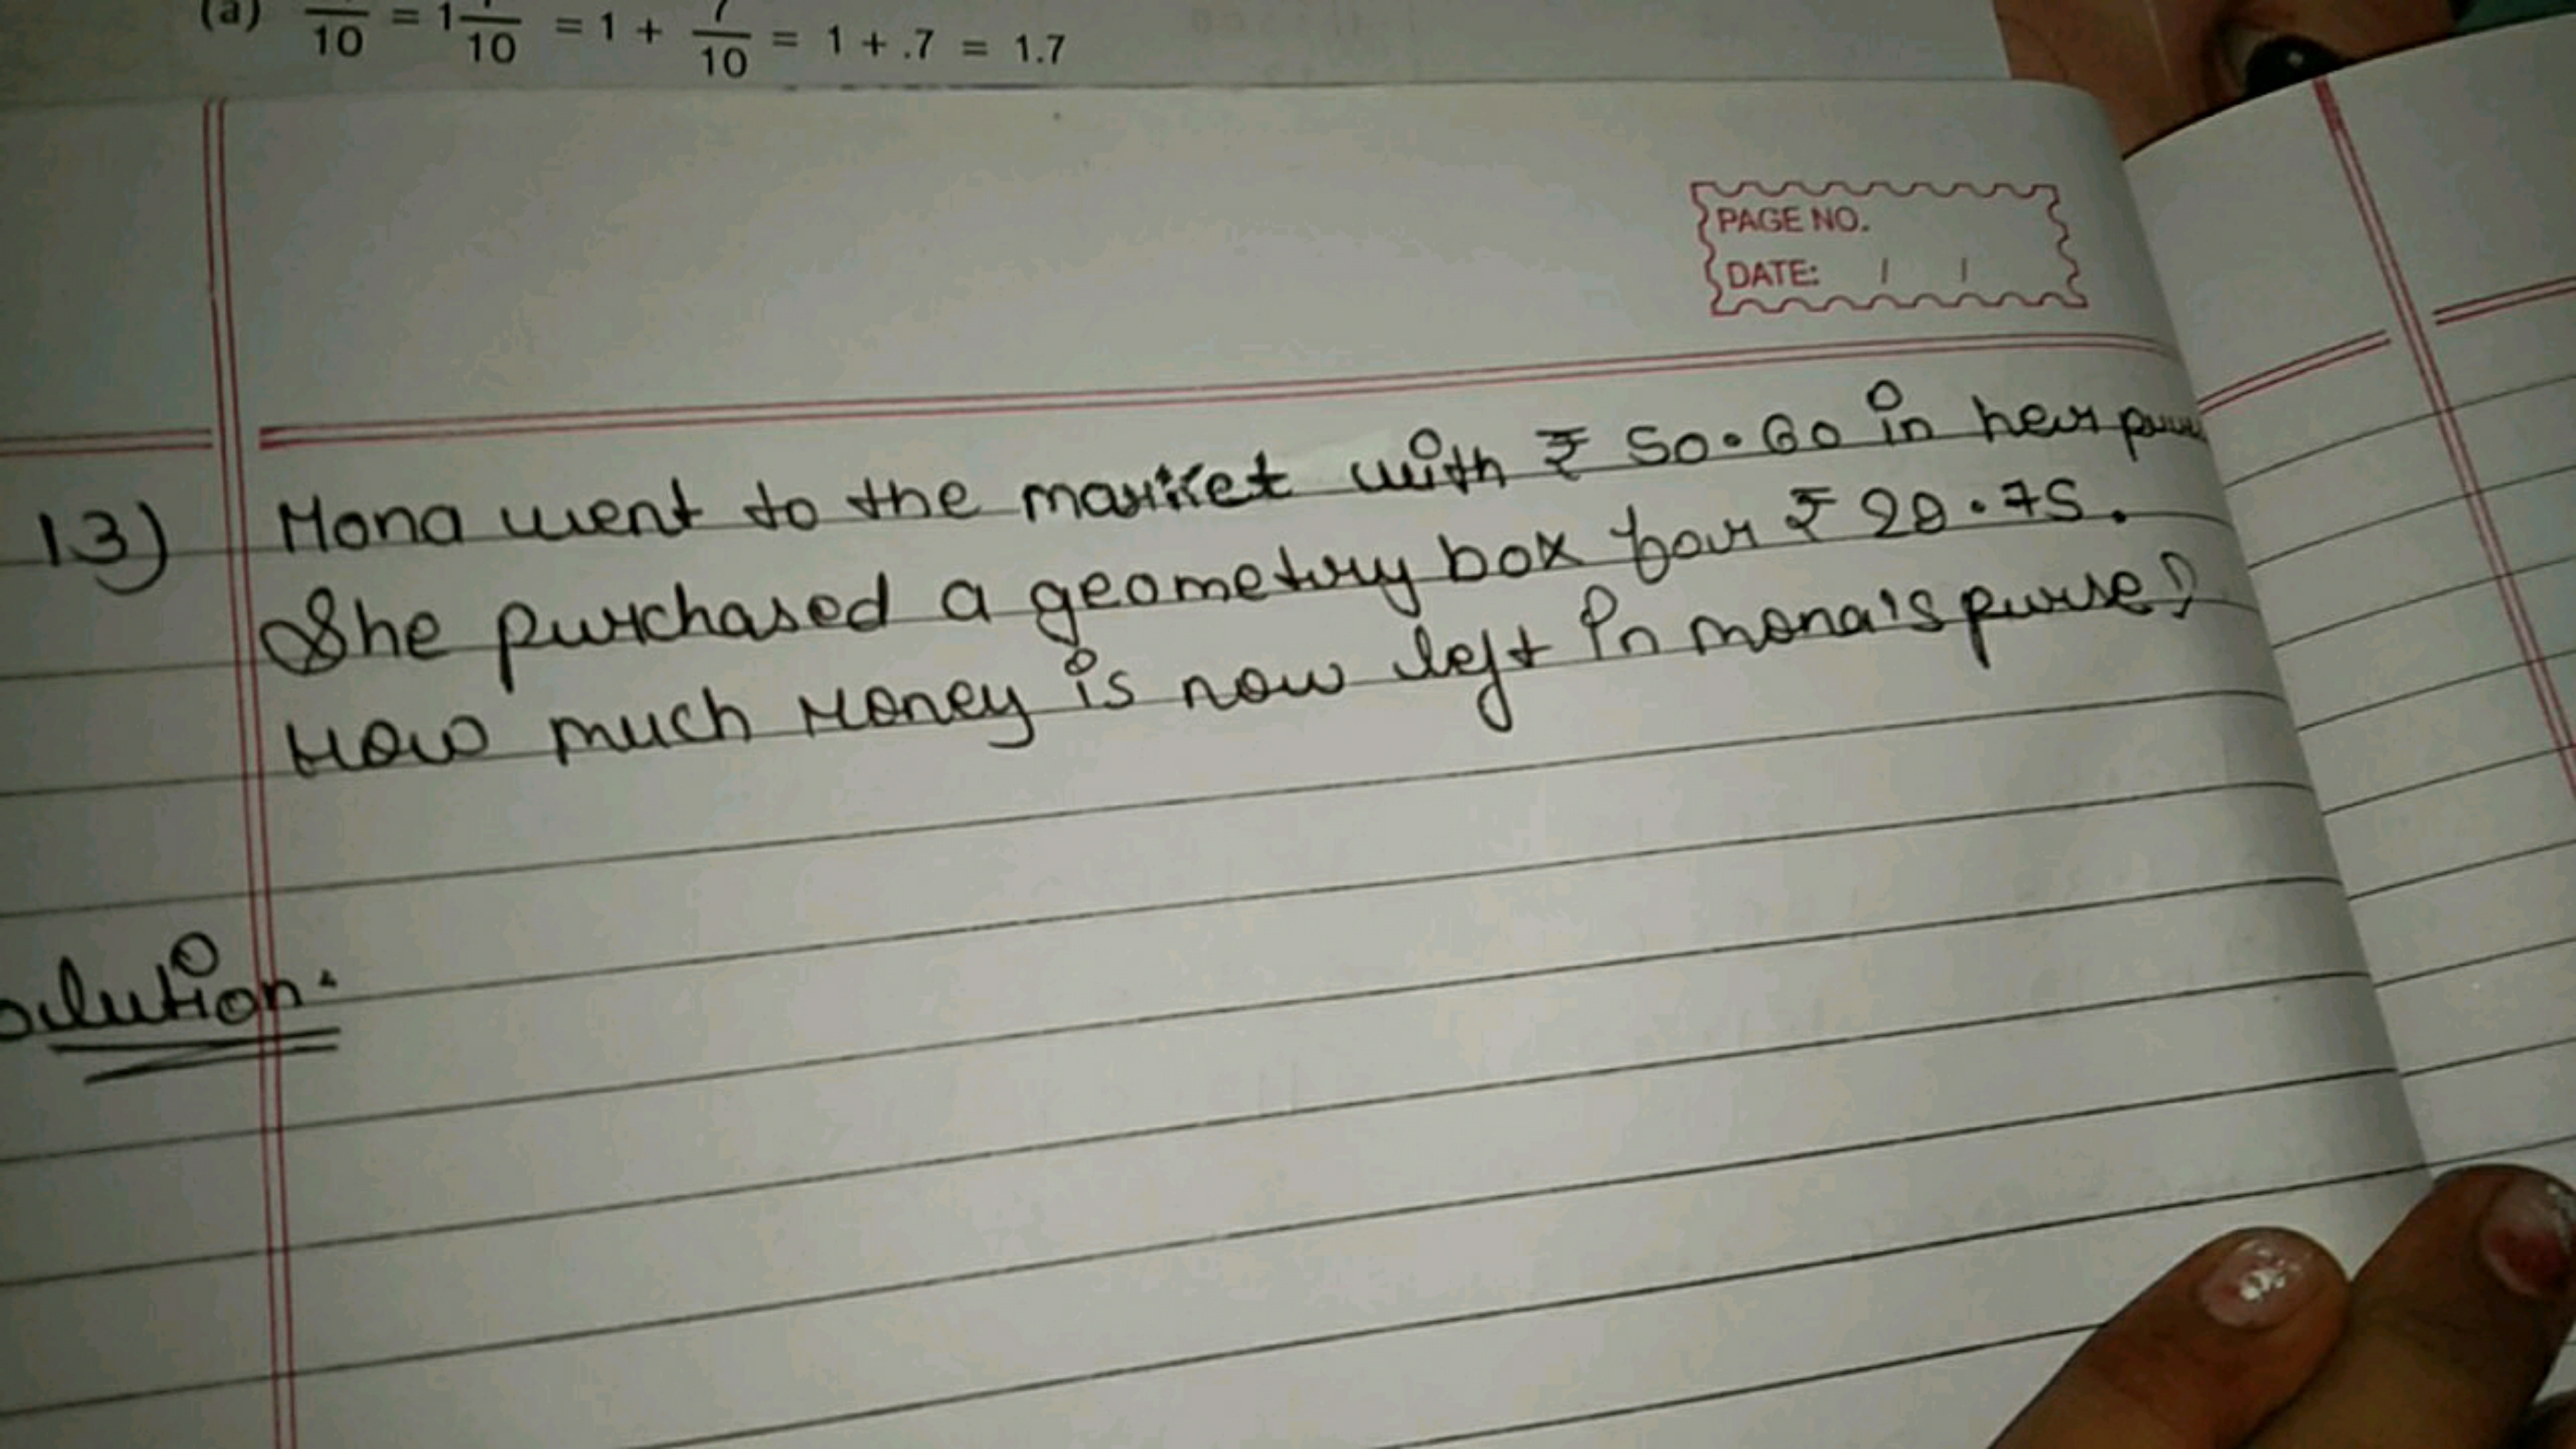 (a) 10 = 1 7/10 = 1 + 7/10 = 1 + .7 = 1.7
PAGE NO.
DATE: / /
13) Mona went to the market with ₹ 50.60 in her
She purchased a geometry box for ₹ 28.75.
How much Money is now left in mona's purse?
olution: